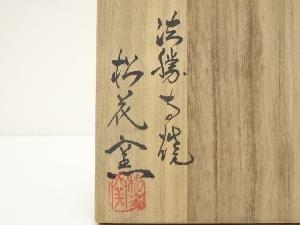 法勝寺焼
松花窯